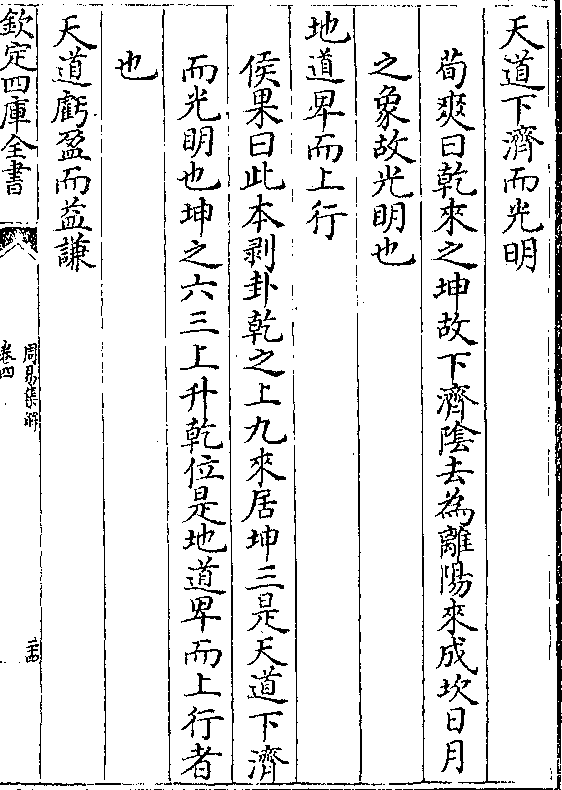 天道下濟而光明
荀爽曰乾來之坤故下濟陰去為離陽來成坎日月
之象故光明也
地道卑而上行
侯果曰此本剥卦乾之上九來居坤三是天道下濟
而光明也坤之六三上升乾位是地道卑而上行者
也
天道虧盈而益謙
欽定四庫全書
周易集解
卷四
二四